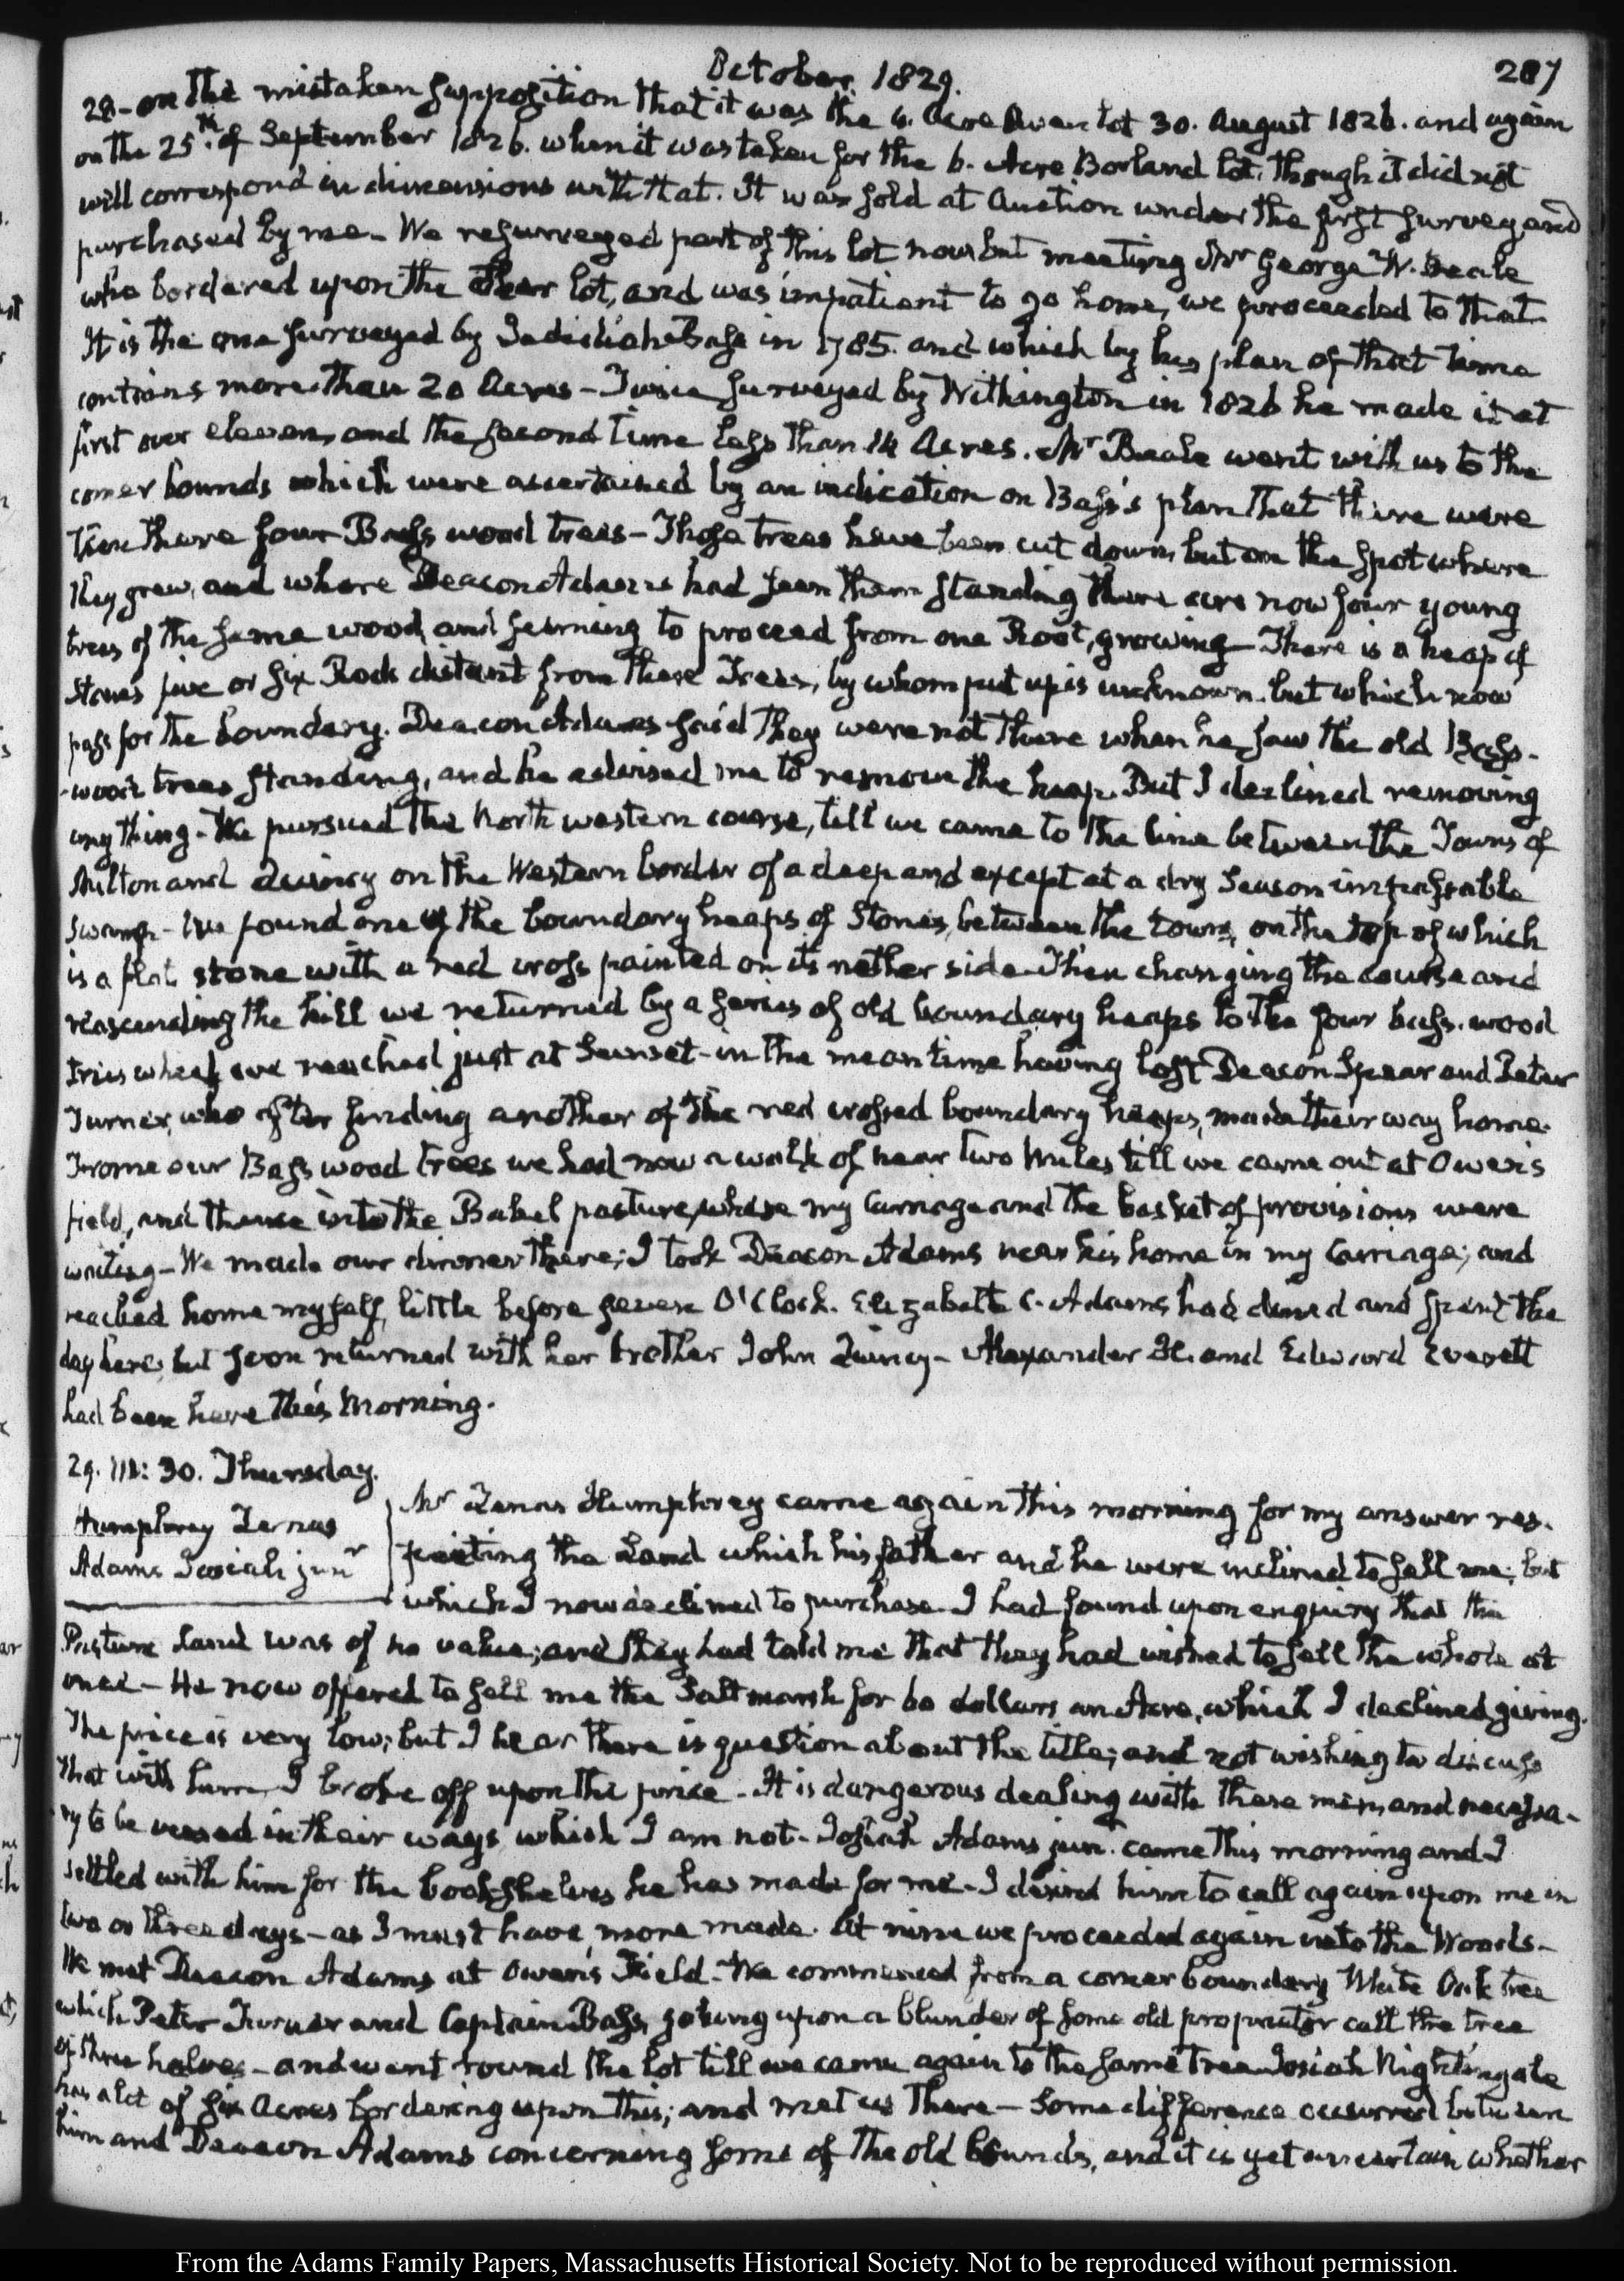 October 1829.
287
28 - on the mistaken supposition that it was the 6. Acre Owen lot 30. August 1826. and again
on the 25th. of September 1826. when it was taken for the 6. Acre Borland lot. Though it did not
will correspond in dimensions with that. It was sold at Auction under the first survey and
purchased by me - We resurveyed part of this lot now but meeting Mr George W. Beale
who bordered upon the other lot, and was impatient to go home, we proceeded to that
It is the one surveyed by Jedidiah Bass in 1785. and which by his plan of that time
contains more than 20 Acres - Twice surveyed by Withington in 1826 he made it at
first over eleven, and the second time less than 14 Acres. Mr Beale went with us to the
corner bounds which were ascertained by an indication on Bass's plan that there were
then there four Bass wood trees - Those trees have been cut down, but on the spot where
they grew, and where Deacon Adams had seen them standing there are now four young
trees of the same wood, and seeming to proceed from one Root, growing - There is a heap of
Stones five or six Rods distant from these Trees, by whom put up is unknown. but which now
pass for the boundary. Deacon Adams said they were not there when he saw the old Bass-
-wood trees standing, and he advised me to remove the heap. But I declined removing
any thing - We pursued the North western course, till we came to the line between the Towns of
Milton and Quincy on the Western border of a deep and except at a dry Season impassable
swamp - We found one of the boundary heaps of Stones, between the towns, on the top of which
is a flat stone with a red cross painted on its nether side - Then changing the course and
reascending the hill we returned by a series of old boundary heaps to the four bass-wood
trees which we reached just at Sunset - in the mean time having lost Deacon Spear and Peter
Turner, who after finding another of the red crossed boundary heaps, made their way home.
From our Bass wood trees we had now a walk of near two Miles till we came out at Owen's
field, and thence into the Babel pasture, where my Carriage and the basket of provisions were
waiting - We made our dinner there; I took Deacon Adams near his home in my Carriage; and
reached home myself, little before seven O'Clock. Elizabeth C. Adams, had dined and spent the
day here, but soon returned with her brother John Quincy - Alexander H. and Edward Everett
had been here this Morning.
29. IV: 30. Thursday.
Humphrey Zenas
Adams Josiah junr
Mr Zenas Humphrey came again this morning for my answer res-
pecting the Land which his father and he were inclined to sell me; but
which I now declined to purchase. I had found upon enquiry that the
Pasture Land was of no value; and they had told me that they had wished to sell the whole at
once - He now offered to sell me the Salt marsh for 60 dollars an Acre, which I declined giving.
The price is very low; but I hear there is question about the title; and not wishing to discuss
that with him, I broke off upon the price - It is dangerous dealing with these men, and necessa-
ry to be versed in their ways which I am not - Josiah Adams jun. came this morning and I
settled with him for the book shelves he has made for me - I desired him to call again upon me in
two or three days - as I must have more made. At nine we proceeded again into the Woods -
We met Deacon Adams at Owen's Field - We commenced from a corner boundary White Oak tree
which Peter Turner and Captain Bass, joking upon a blunder of some old proprietor call the tree
of three halves - and went round the lot till we came again to the same tree. Josiah Nightingale
has a lot of six Acres bordering upon this; and met us there - Some difference occurred between
him and Deacon Adams concerning some of the old bounds, and it is yet uncertain whether
From the Adams Family Papers, Massachusetts Historical Society. Not to be reproduced without permission.